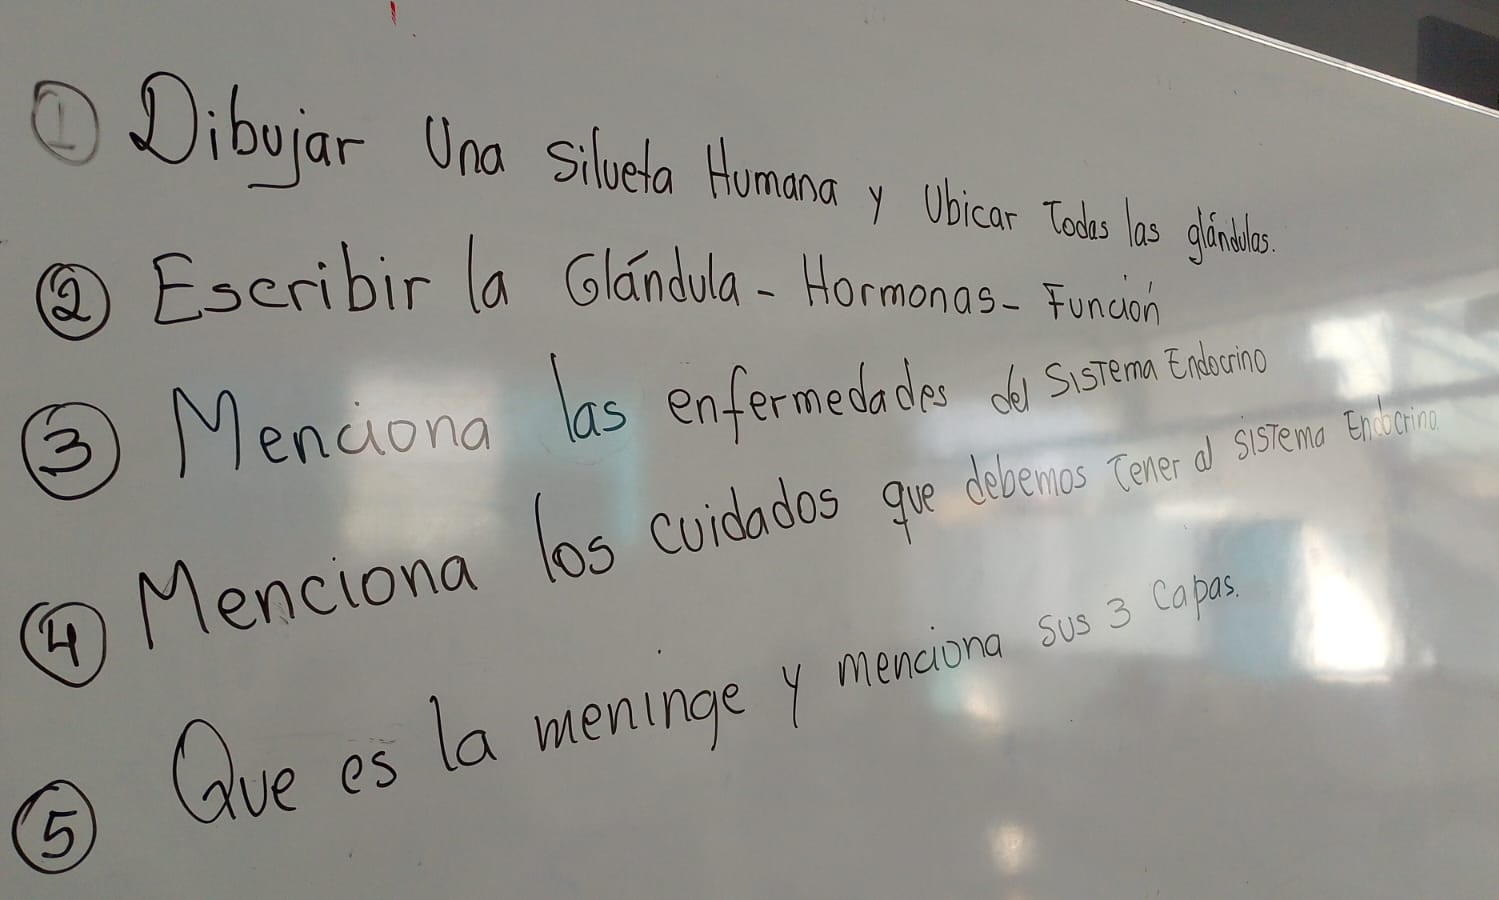 ① Dibujar Una Silueta Humana y Ubicar Todas las glándulas.
② Escribir la Glándula - Hormonas - Función
③ Menciona las enfermedades del Sistema Endocrino
④ Menciona los cuidados que debemos Tener al Sistema Endocrino.
⑤ Que es la meninge y menciona sus 3 Capas.